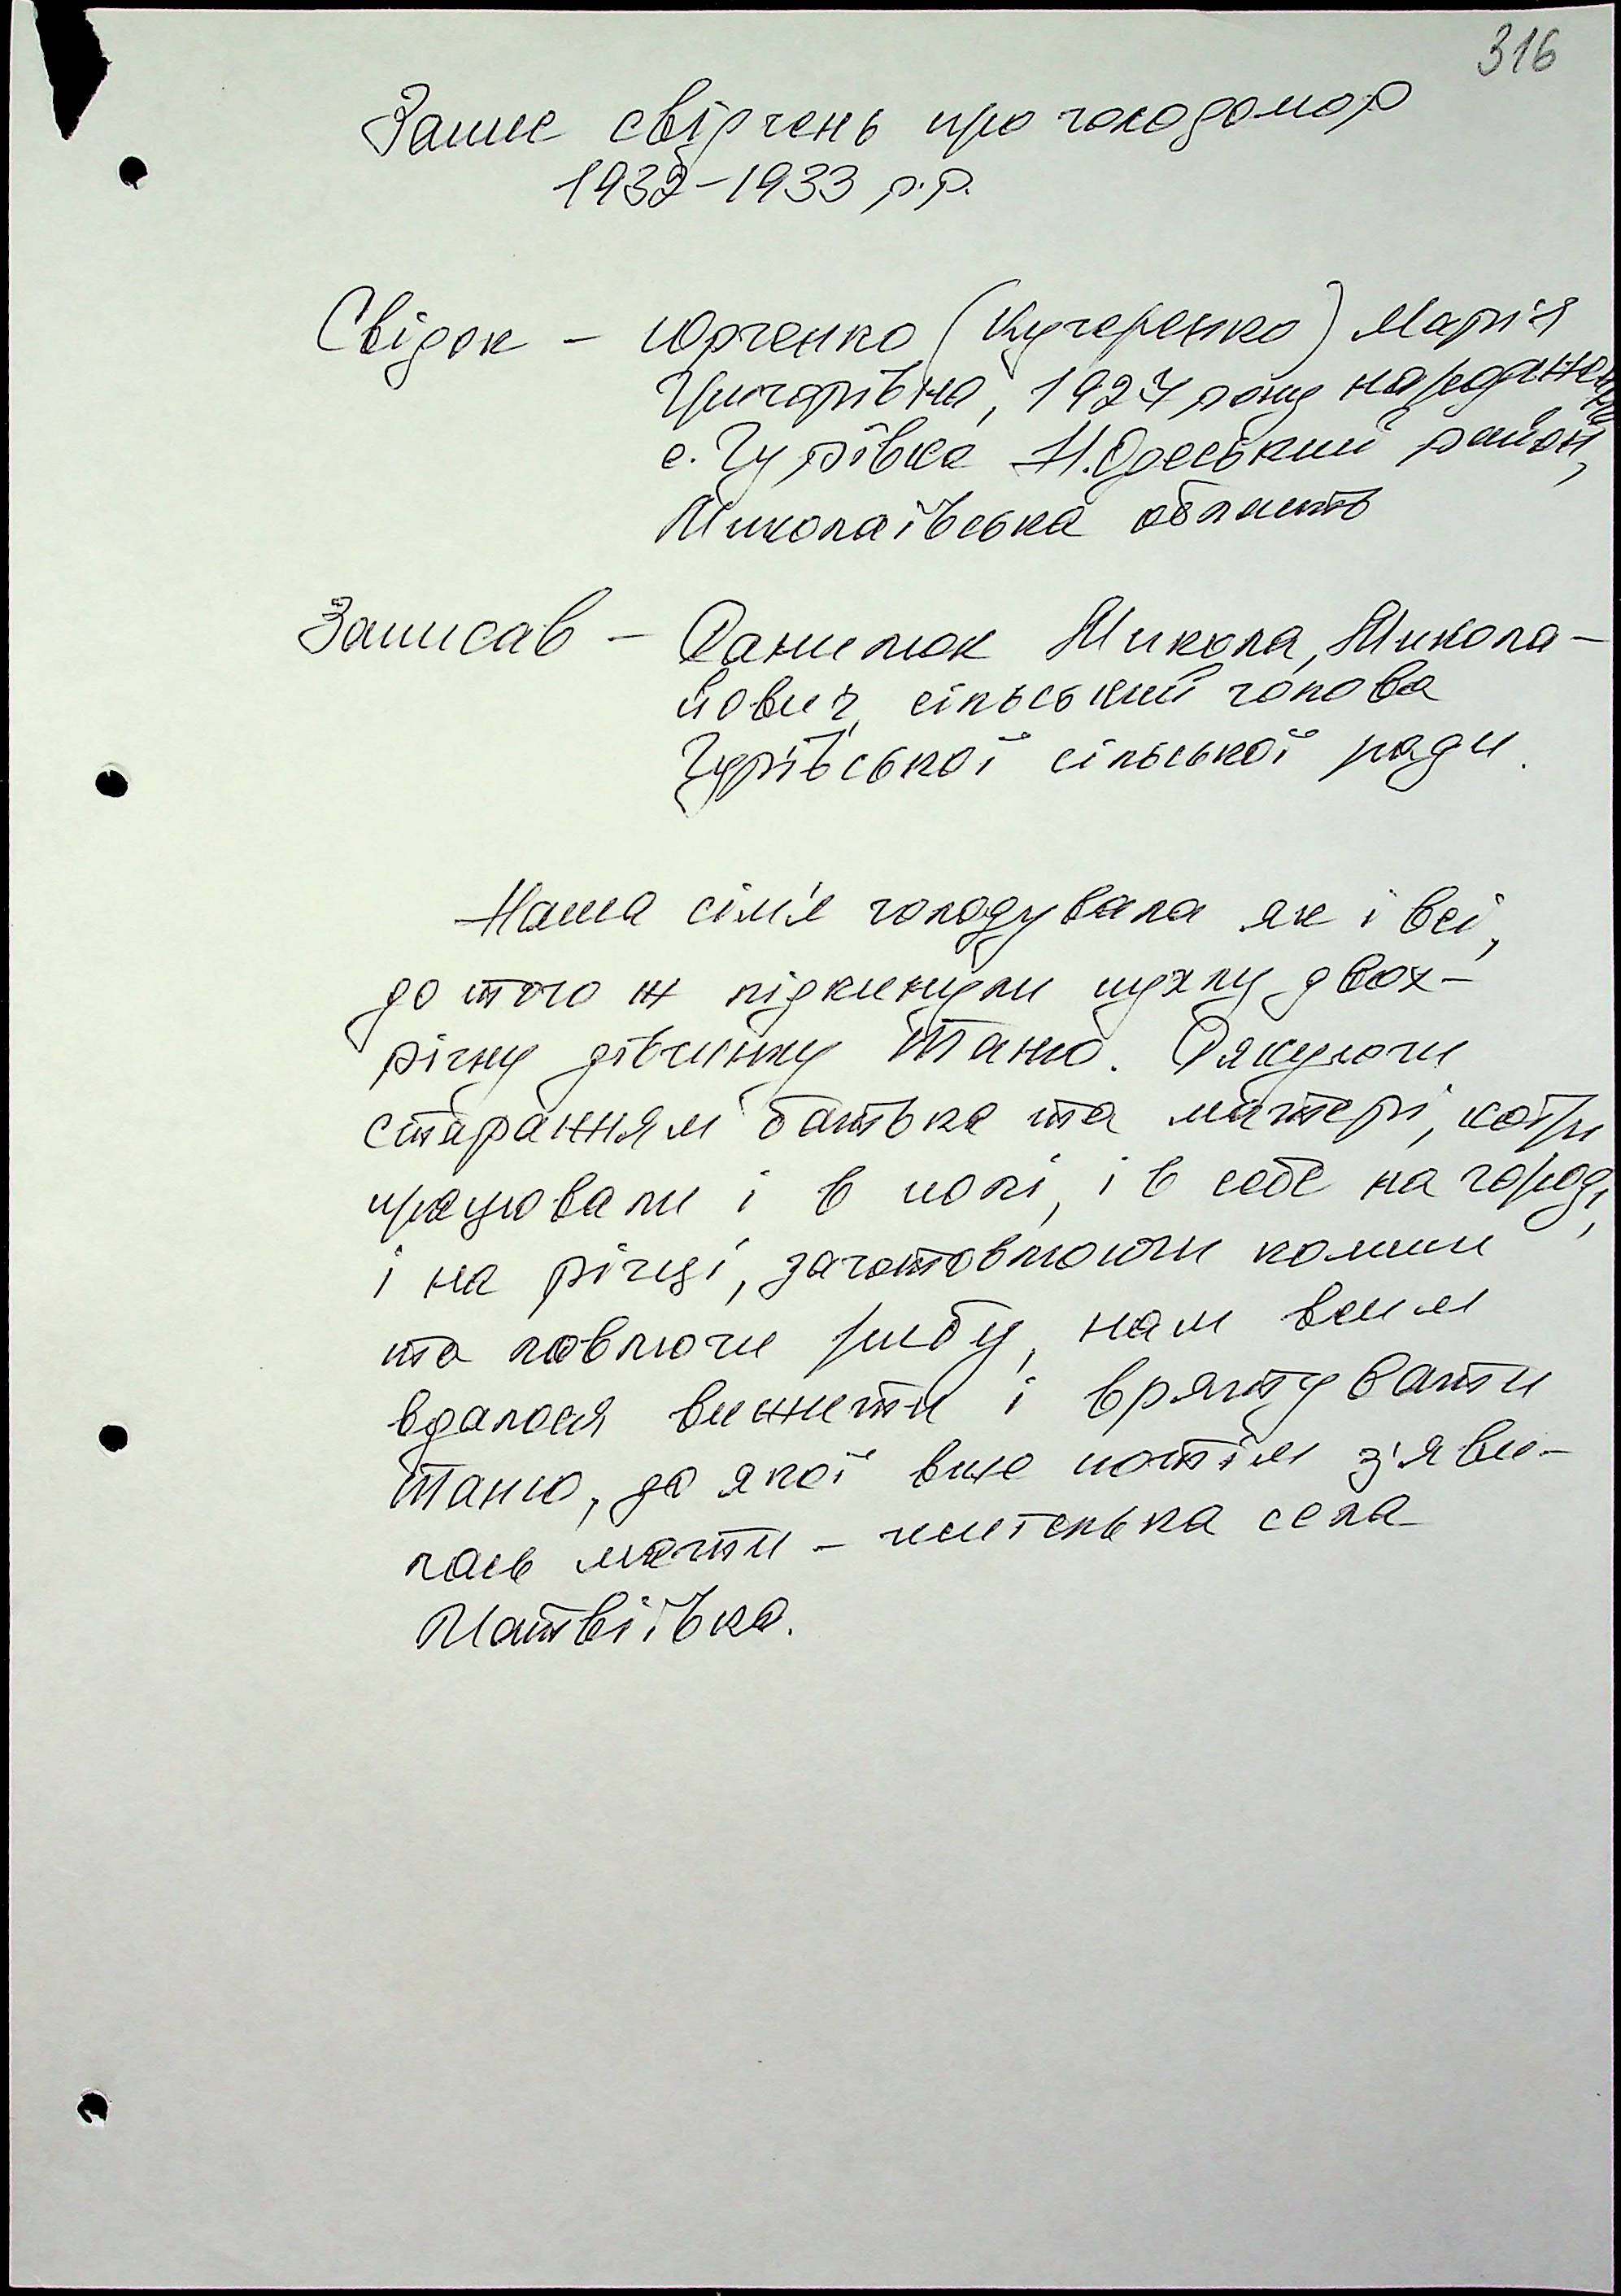 316
Запис свідчень про голодомор
1932-1933 р.р.
Свідок - Юрченко (Кучеренко) Марія
Григорівна, 1927 року народження
с. Гурівка Н.Одеський район,
Миколаївська область
Записав - Данилюк Микола Микола-
йович, сільський голова
Гурівської сільської ради.
Наша сім'я голодувала як і всі,
до того ж підкинули пухлу двох-
річну дівчинку Таню. Дякуючи
старанням батька та матері, котрі
працювали і в полі, і в себе на городі,
і на річці, заготовлюючи комиш
та ловлючи рибу, нам всим
вдалося вижити і врятувати
Таню, до якої вже потім з'яви-
лась мати - жителька села
Матвіївка.